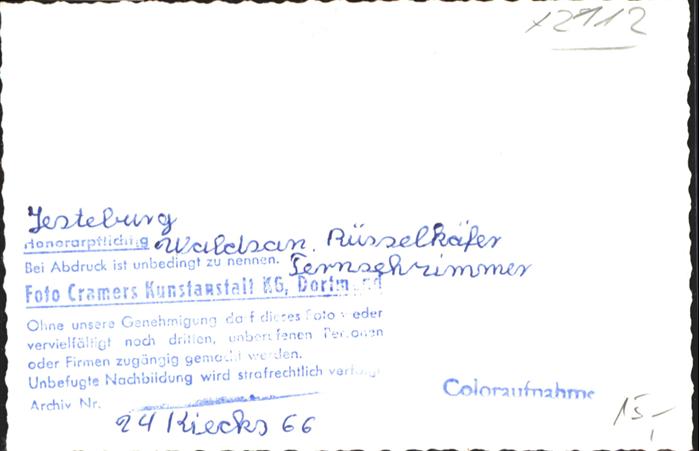 x2912
Jesteburg
Honorarpflichtig Waldsan. Rüsselkäfer
Bei Abdruck ist unbedingt zu nennen. Fernsehzimmer
Foto Cramers Kunstanstalt KG, Dortmund
Ohne unsere Genehmigung darf dieses Foto weder
vervielfältigt noch dritten, unberufenen Personen
oder Firmen zugängig gemacht werden.
Unbefugte Nachbildung wird strafrechtlich verfolgt
Archiv Nr.
24 Kiecks 66
Coloraufnahme
15,-